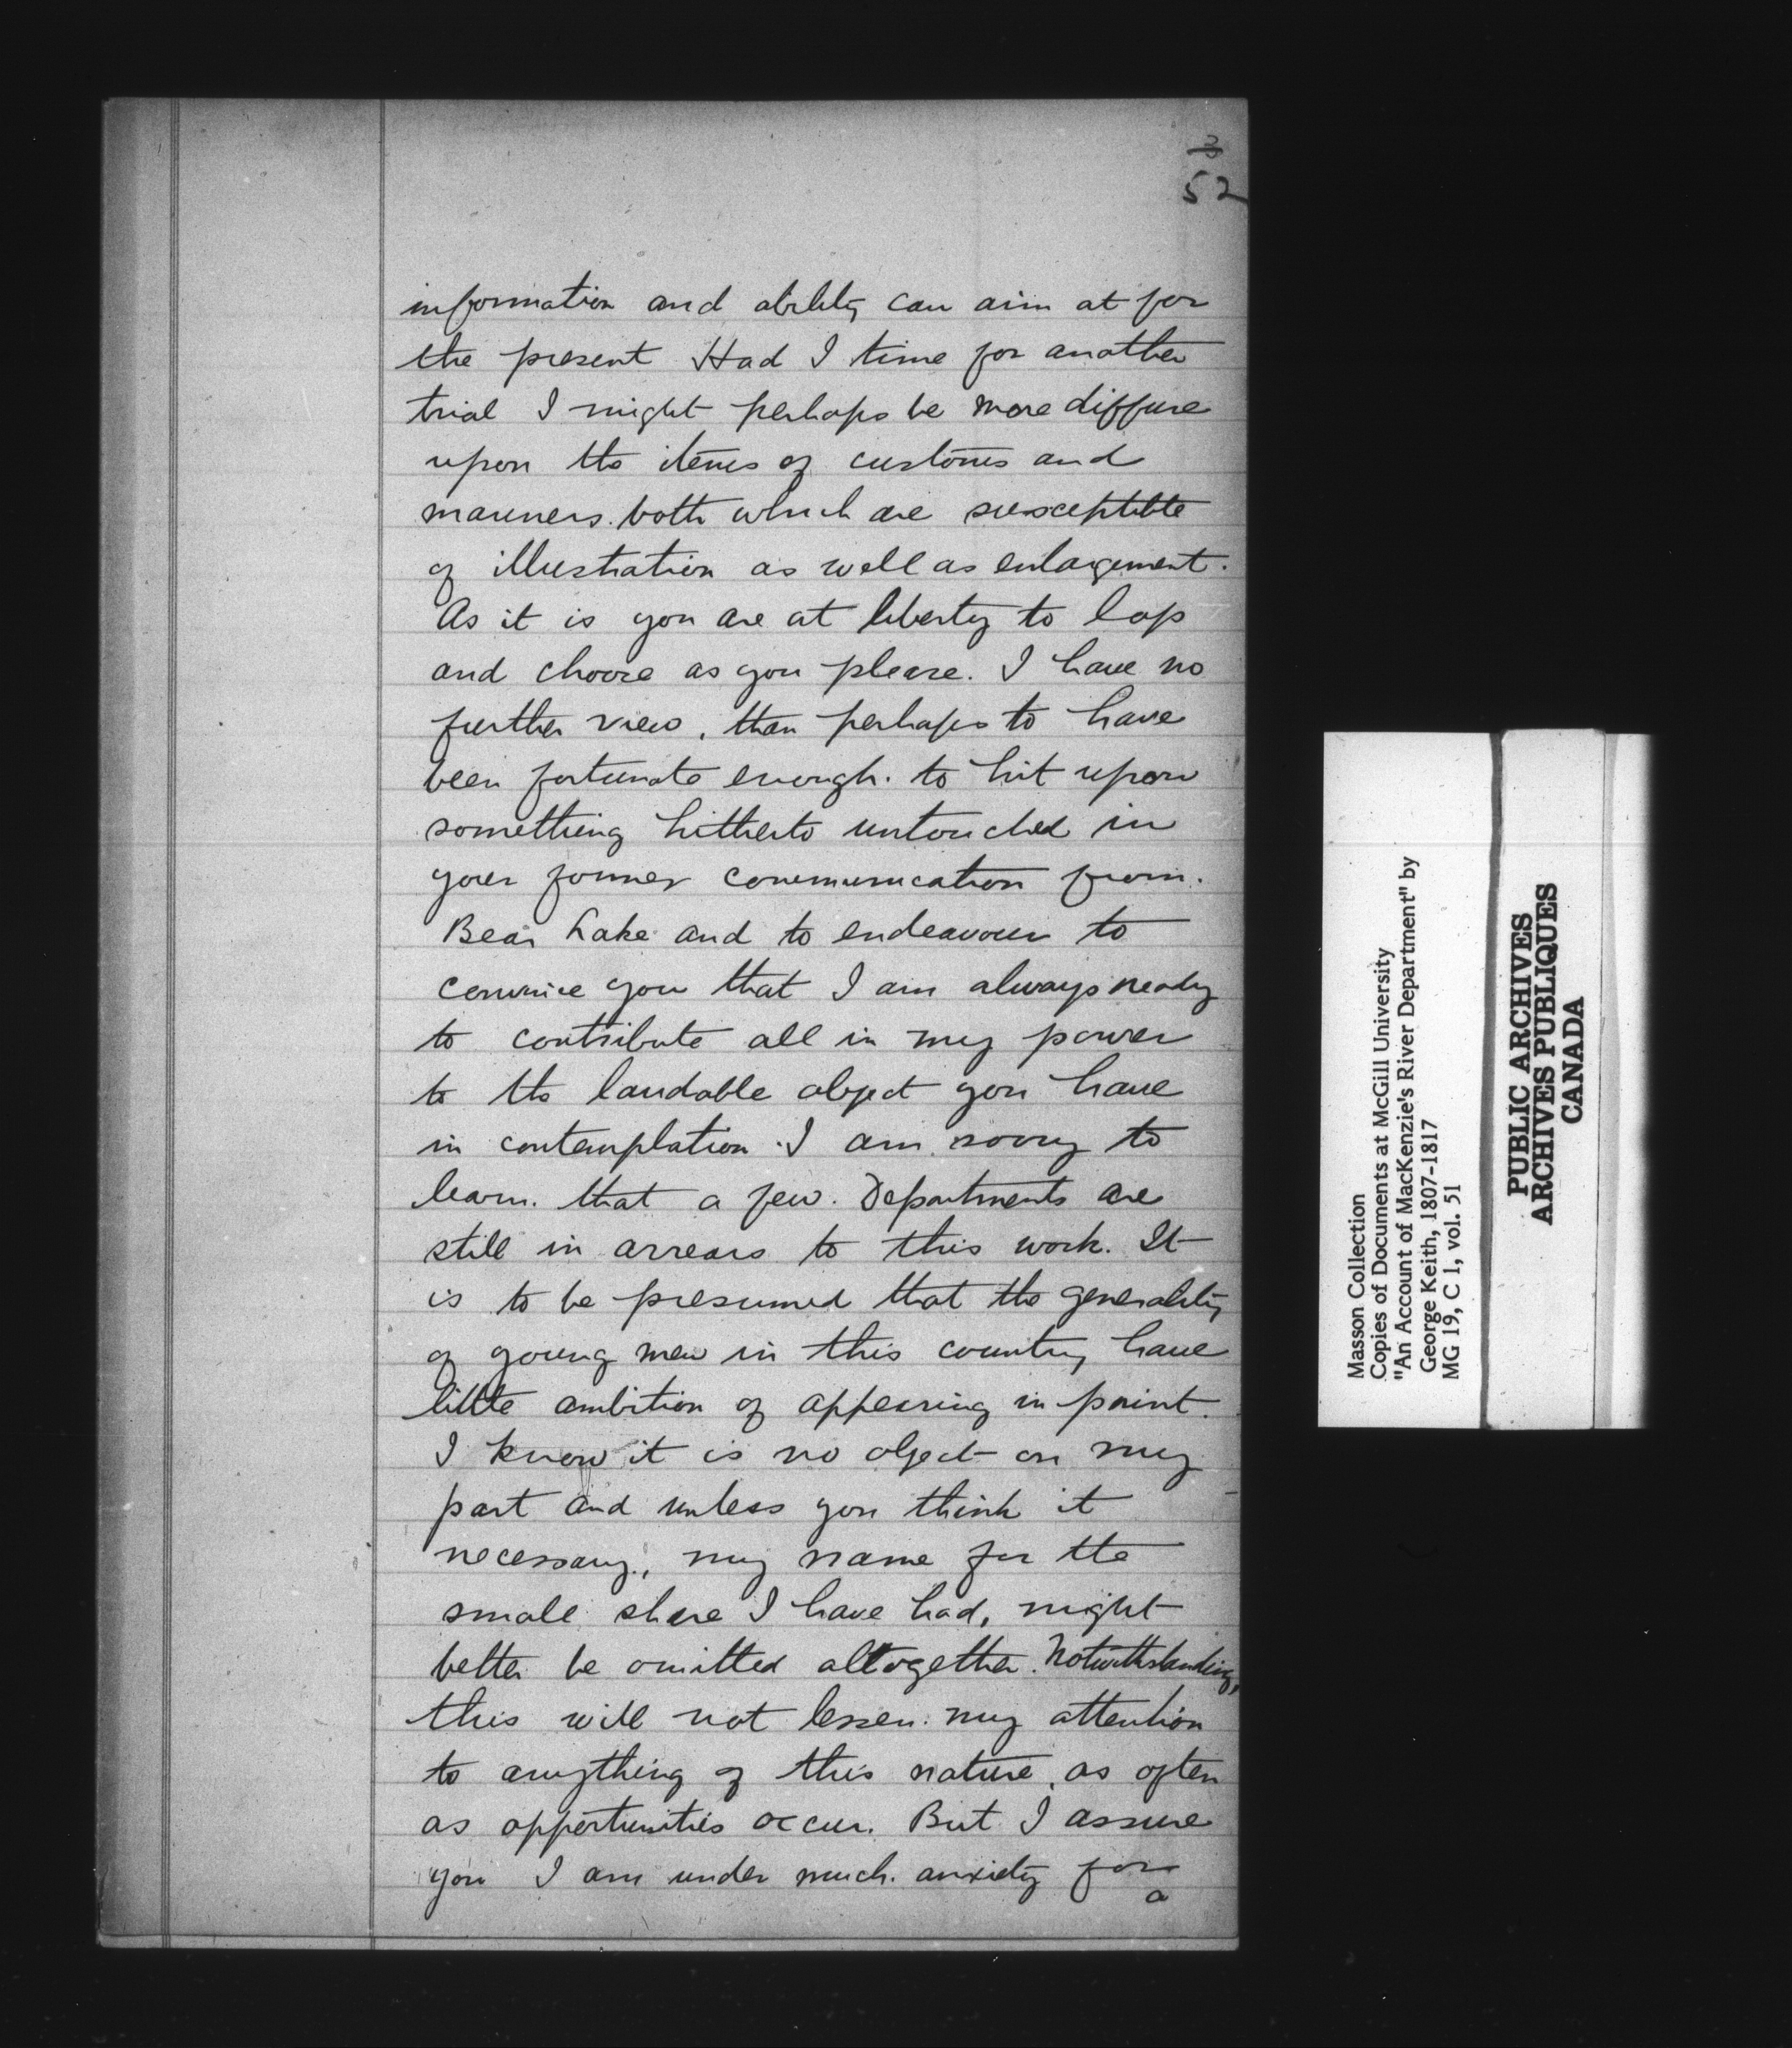 3
52
information and ability can aim at for
the present Had I time for another
trial I might perhaps be more diffuse
upon the items of customs and
manners. both which are susceptible
of illustration as well as enlargement.
As it is you are at liberty to lop
and choose as you please. I have no
further view, than perhaps to have
been fortunate enough. to hit upon
something hitherto untouched in
your former communication from.
Bear Lake and to endeavour to
convince you that I am always ready
to contribute all in my power
to the laudable object you have
in contemplation. I am sorry to
learn. that a few. Departments are
still in arrears to this work. It
is to be presumed that the generality
of young men in this country have
little ambition of appearing in print.
I know it is no object on my
part and unless you think it
necessary, my name for the
small share I have had, might
better be omitted altogether. Notwithstanding,
this will not lessen. my attention
to anything of this nature, as often
as opportunities occur. But I assure
you I am under much. anxiety for
a
Masson Collection
Copies of Documents at McGill University
"An Account of MacKenzie's River Department" by
George Keith, 1807-1817
MG 19, C 1, vol. 51
PUBLIC ARCHIVES
ARCHIVES PUBLIQUES
CANADA